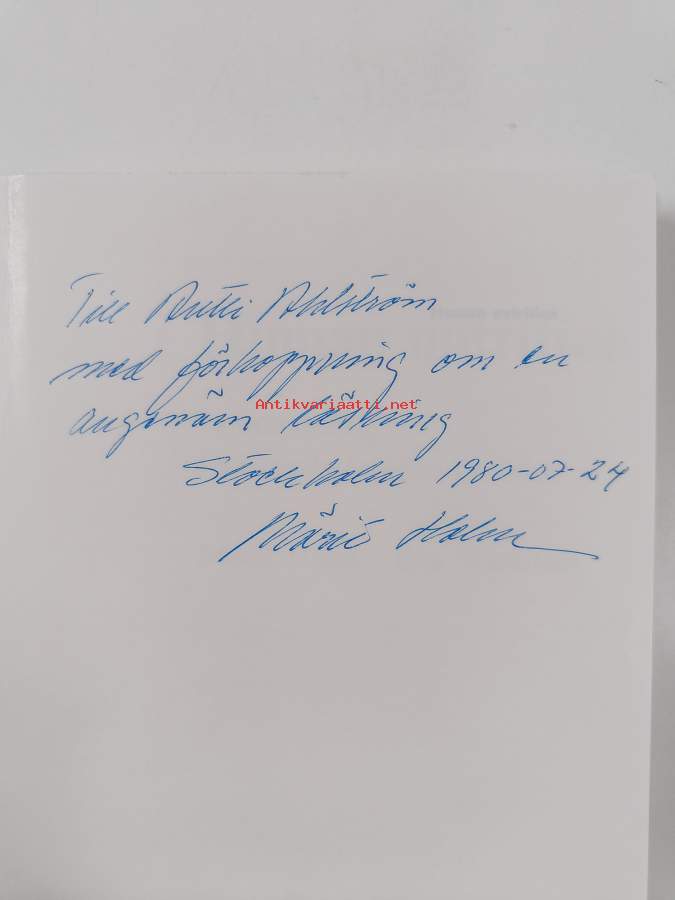 Till Antti Ahlström
med förhoppning om en
Antikvariaatti.net
angenäm läsning
Stockholm 1980-07-24
Holm